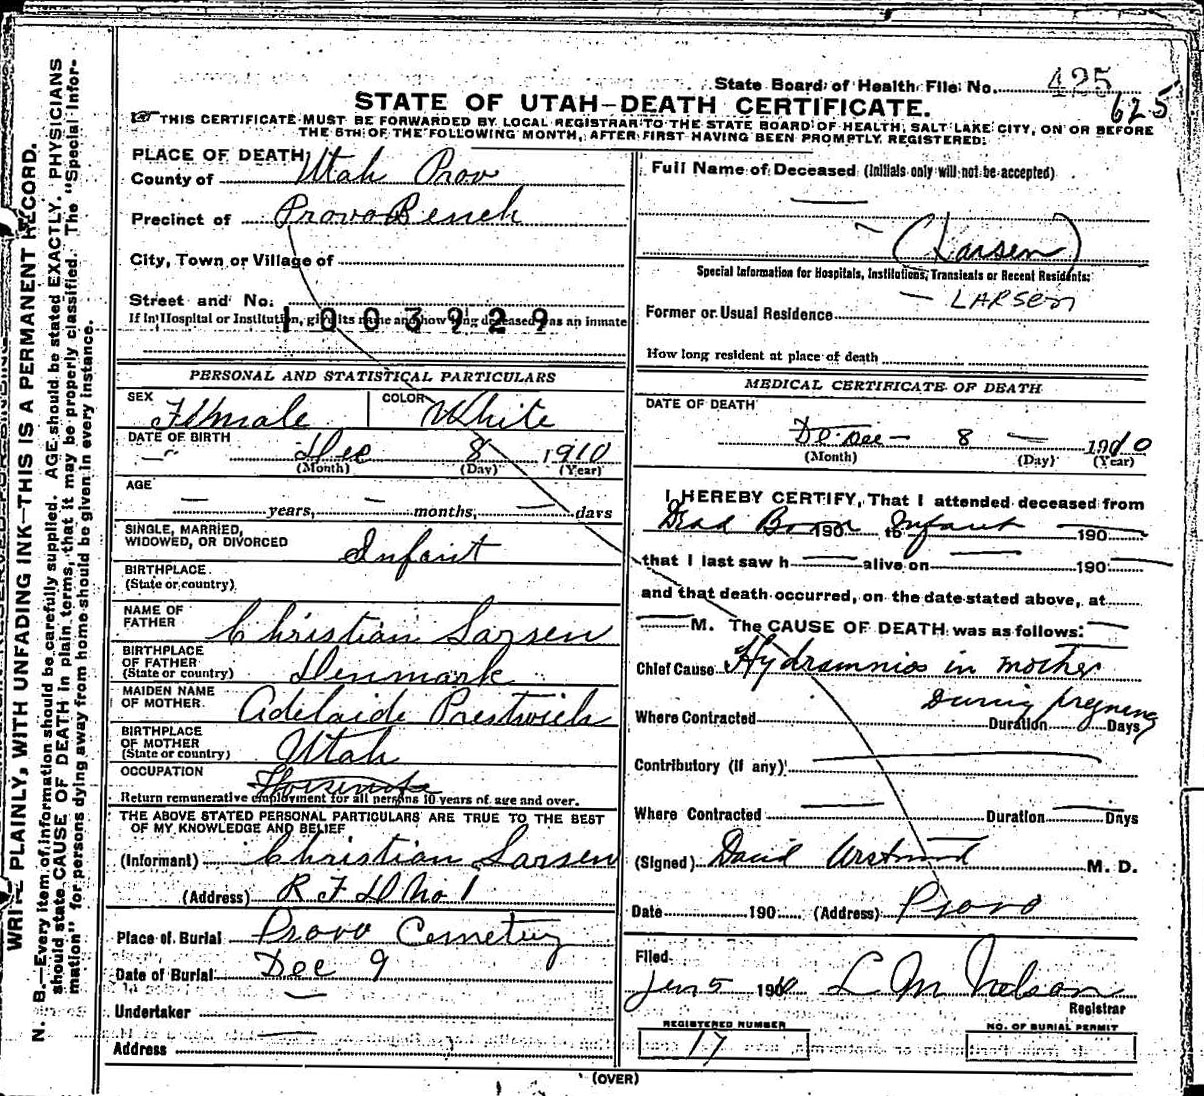 State Board of Health File No. 425
625
STATE OF UTAH—DEATH CERTIFICATE.
THIS CERTIFICATE MUST BE FORWARDED BY LOCAL REGISTRAR TO THE STATE BOARD OF HEALTH, SALT LAKE CITY, ON OR BEFORE
THE 5TH OF THE FOLLOWING MONTH, AFTER FIRST HAVING BEEN PROMPTLY REGISTERED.
WRITE PLAINLY, WITH UNFADING INK—THIS IS A PERMANENT RECORD.
N. B.—Every item of information should be carefully supplied. AGE should be stated EXACTLY. PHYSICIANS
should state CAUSE OF DEATH in plain terms, that it may be properly classified. The "Special Infor-
mation" for persons dying away from home should be given in every instance.
PLACE OF DEATH
County of Utah Prov
Precinct of Provo Bench
City, Town or Village of
Street and No.
If in Hospital or Institution, give its name and how long deceased was an inmate
1003929
PERSONAL AND STATISTICAL PARTICULARS
SEX Female COLOR White
DATE OF BIRTH Dec 8 1910
(Month) (Day) (Year)
AGE
— years, — months, — days
SINGLE, MARRIED,
WIDOWED, OR DIVORCED Infant
BIRTHPLACE
(State or country)
NAME OF
FATHER Christian Larsen
BIRTHPLACE
OF FATHER
(State or country) Denmark
MAIDEN NAME
OF MOTHER Adelaide Prestwich
BIRTHPLACE
OF MOTHER
(State or country) Utah
OCCUPATION
Return remunerative employment for all persons 10 years of age and over.
THE ABOVE STATED PERSONAL PARTICULARS ARE TRUE TO THE BEST
OF MY KNOWLEDGE AND BELIEF
(Informant) Christian Larsen
(Address) R F D No 1
Place of Burial Provo Cemetery
Date of Burial Dec 9
Undertaker —
Address —
Full Name of Deceased (Initials only will not be accepted)
— (Larsen)
Special Information for Hospitals, Institutions, Transients or Recent Residents:
— LARSEN
Former or Usual Residence
How long resident at place of death
MEDICAL CERTIFICATE OF DEATH
DATE OF DEATH
Dec — 8 — 1910
(Month) (Day) (Year)
I HEREBY CERTIFY, That I attended deceased from
Dead Born 190 to Infant 190
that I last saw h — alive on — 190
and that death occurred, on the date stated above, at
— M. The CAUSE OF DEATH was as follows:
Chief Cause Hydramnios in mother
During pregnency
Where Contracted Duration Days
Contributory (if any) —
Where Contracted — Duration — Days
(Signed) David M. D.
Date 190 (Address) Provo
Filed
Jan 5 190 L M Nelson
Registrar
REGISTERED NUMBER
17
NO. OF BURIAL PERMIT
(OVER)